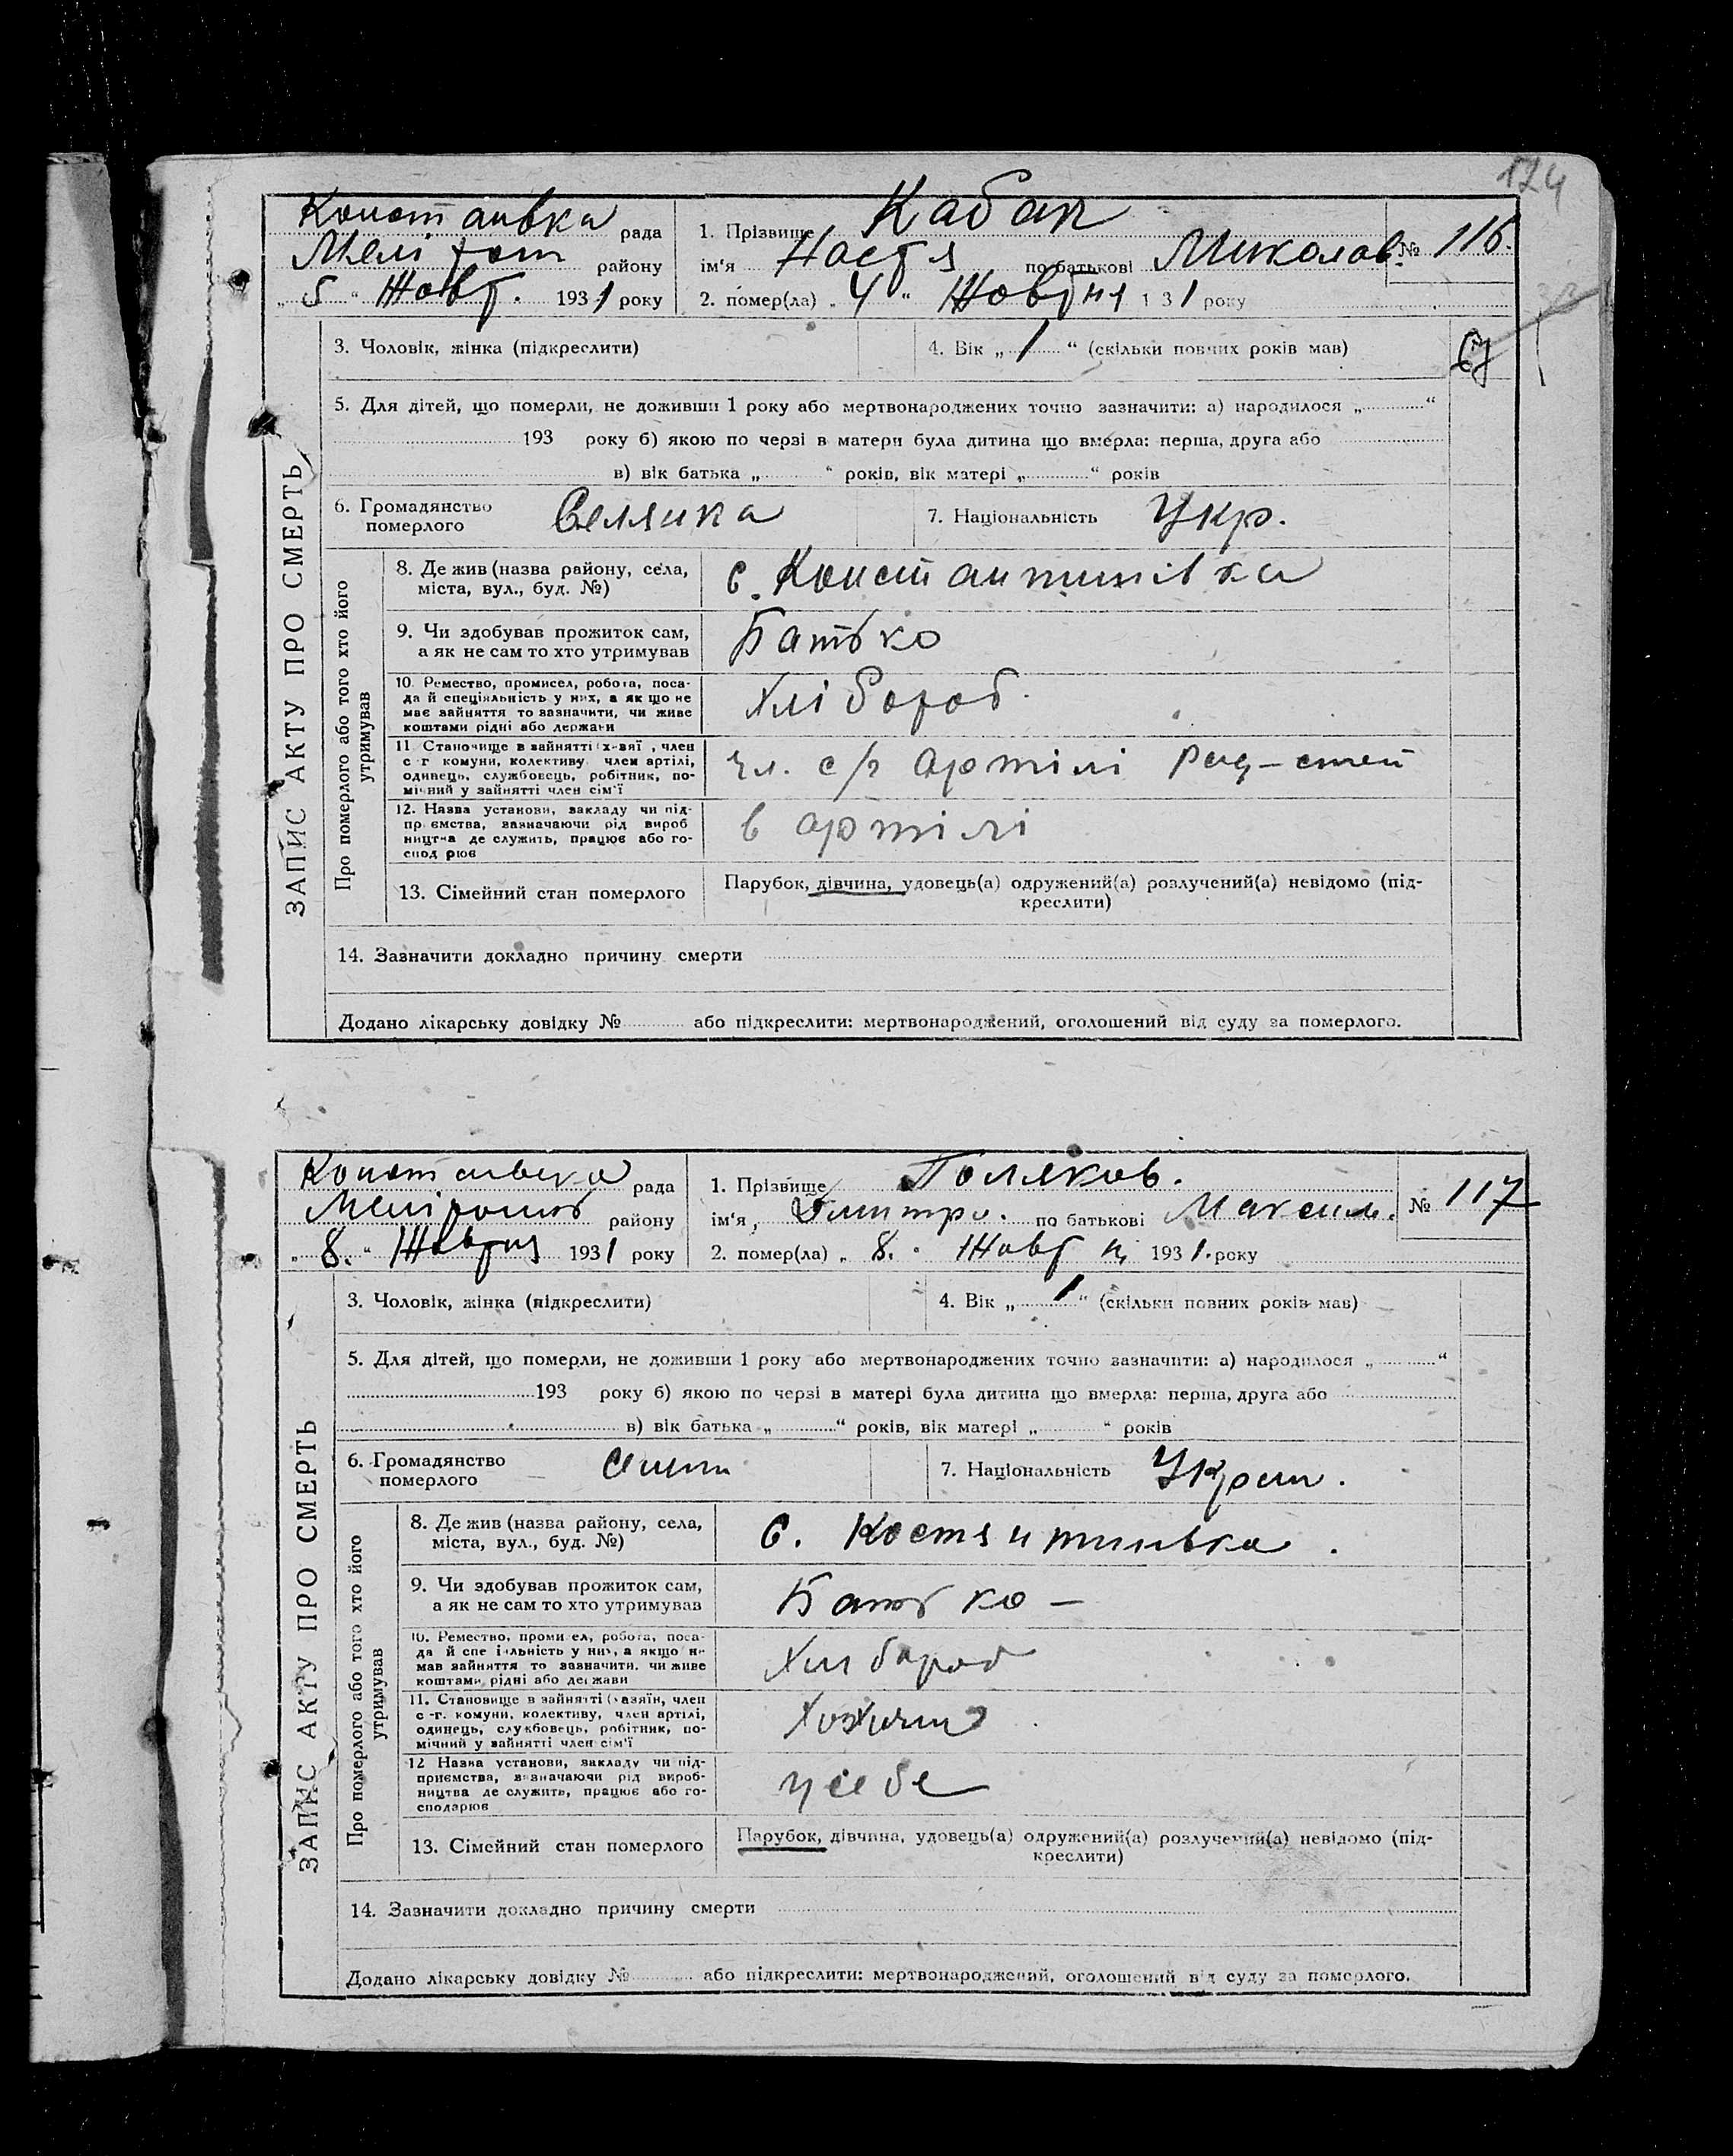 174
Констанвка рада
Меліτоп району
„ 5 “ Жовт. 1931 року
1. Прізвище Кабак
ім'я Настя по батькові Миколов. № 116.
2. помер(ла) „ 4 “ Жовтня 1 31 року
3. Чоловік, жінка (підкреслити) 4. Вік „ 1 “ (скільки повних років мав)
5. Для дітей, що померли, не доживши 1 року або мертвонароджених точно зазначити: а) народилося „ “
193 року б) якою по черзі в матери була дитина що вмерла: перша, друга або
в) вік батька „ “ років, вік матері „ “ років
6. Громадянство
померлого Селянка 7. Національність Укр.
ЗАПИС АКТУ ПРО СМЕРТЬ
Про померлого або того хто його
утримував
8. Де жив (назва району, села,
міста, вул., буд. №) с. Константинівка
9. Чи здобував прожиток сам,
а як не сам то хто утримував Батько
10. Ремество, промисел, робота, поса-
да й спеціяльність у них, а як що не
має зайняття то зазначити, чи живе
коштами рідні або держави Хлібороб.
11 Становище в зайнятті , член
с -г комуни, колективу член артілі,
одинець, службовець, робітник, по-
мічний у зайнятті член сім'ї чл. с/г артілі
12. Назва установи, закладу чи під-
пр ємства, зазначаючи рід вироб
ництва де служить, працює або го-
спод рює в артілі
13. Сімейний стан померлого Парубок, дівчина, удовець(а) одружений(а) розлучений(а) невідомо (під-
креслити)
14. Зазначити докладно причину смерти
Додано лікарську довідку № або підкреслити: мертвонароджений, оголошений від суду за померлого.
рада
району
„ 8. “ Жовтня 1931 року
1. Прізвище Поляков.
ім'я, Дмитро. по батькові Максим. № 117
2. помер(ла) „ 8. “ Жовтн 1931. року
3. Чоловік, жінка (підкреслити) 4. Вік „ 1 “ (скільки повних років мав)
5. Для дітей, що померли, не доживши 1 року або мертвонароджених точно зазначити: а) народилося „ “
193 року б) якою по черзі в матері була дитина що вмерла: перша, друга або
в) вік батька „ “ років, вік матері „ “ років
6. Громадянство
померлого 7. Національність Украш.
ЗАПИС АКТУ ПРО СМЕРТЬ
Про померлого або того хто його
утримував
8. Де жив (назва району, села,
міста, вул., буд. №) с. Костянтинвка.
9. Чи здобував прожиток сам,
а як не сам то хто утримував Батько –
10. Ремество, проми ел, робота, поса-
да й спе іяльність у них, а якщо н
мав зайняття то зазначити, чи живе
коштами рідні або держави Хлібороб
11. Становище в зайнятті (хазяїн, член
с -г. комуни, колективу, член артілі,
одинець, службовець, робітник, по-
мічний у зайнятті член сім'ї
12 Назва установи, закладу чи під-
приємства, зазначаючи рід вироб-
ництва де служить, працює або го-
сподарює у себе
13. Сімейний стан померлого Парубок, дівчина, удовець(а) одружений(а) розлучений(а) невідомо (під-
креслити)
14. Зазначити докладно причину смерти
Додано лікарську довідку № або підкреслити: мертвонароджений, оголошений від суду за померлого.